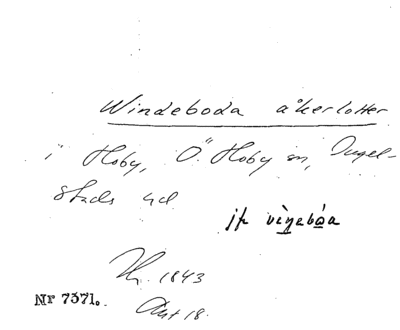 Windeboda åkerlotter
i Hoby, Ö. Hoby sn, Ingel-
stads hd
jfr
1843
Akt 18.
Nr 7371.